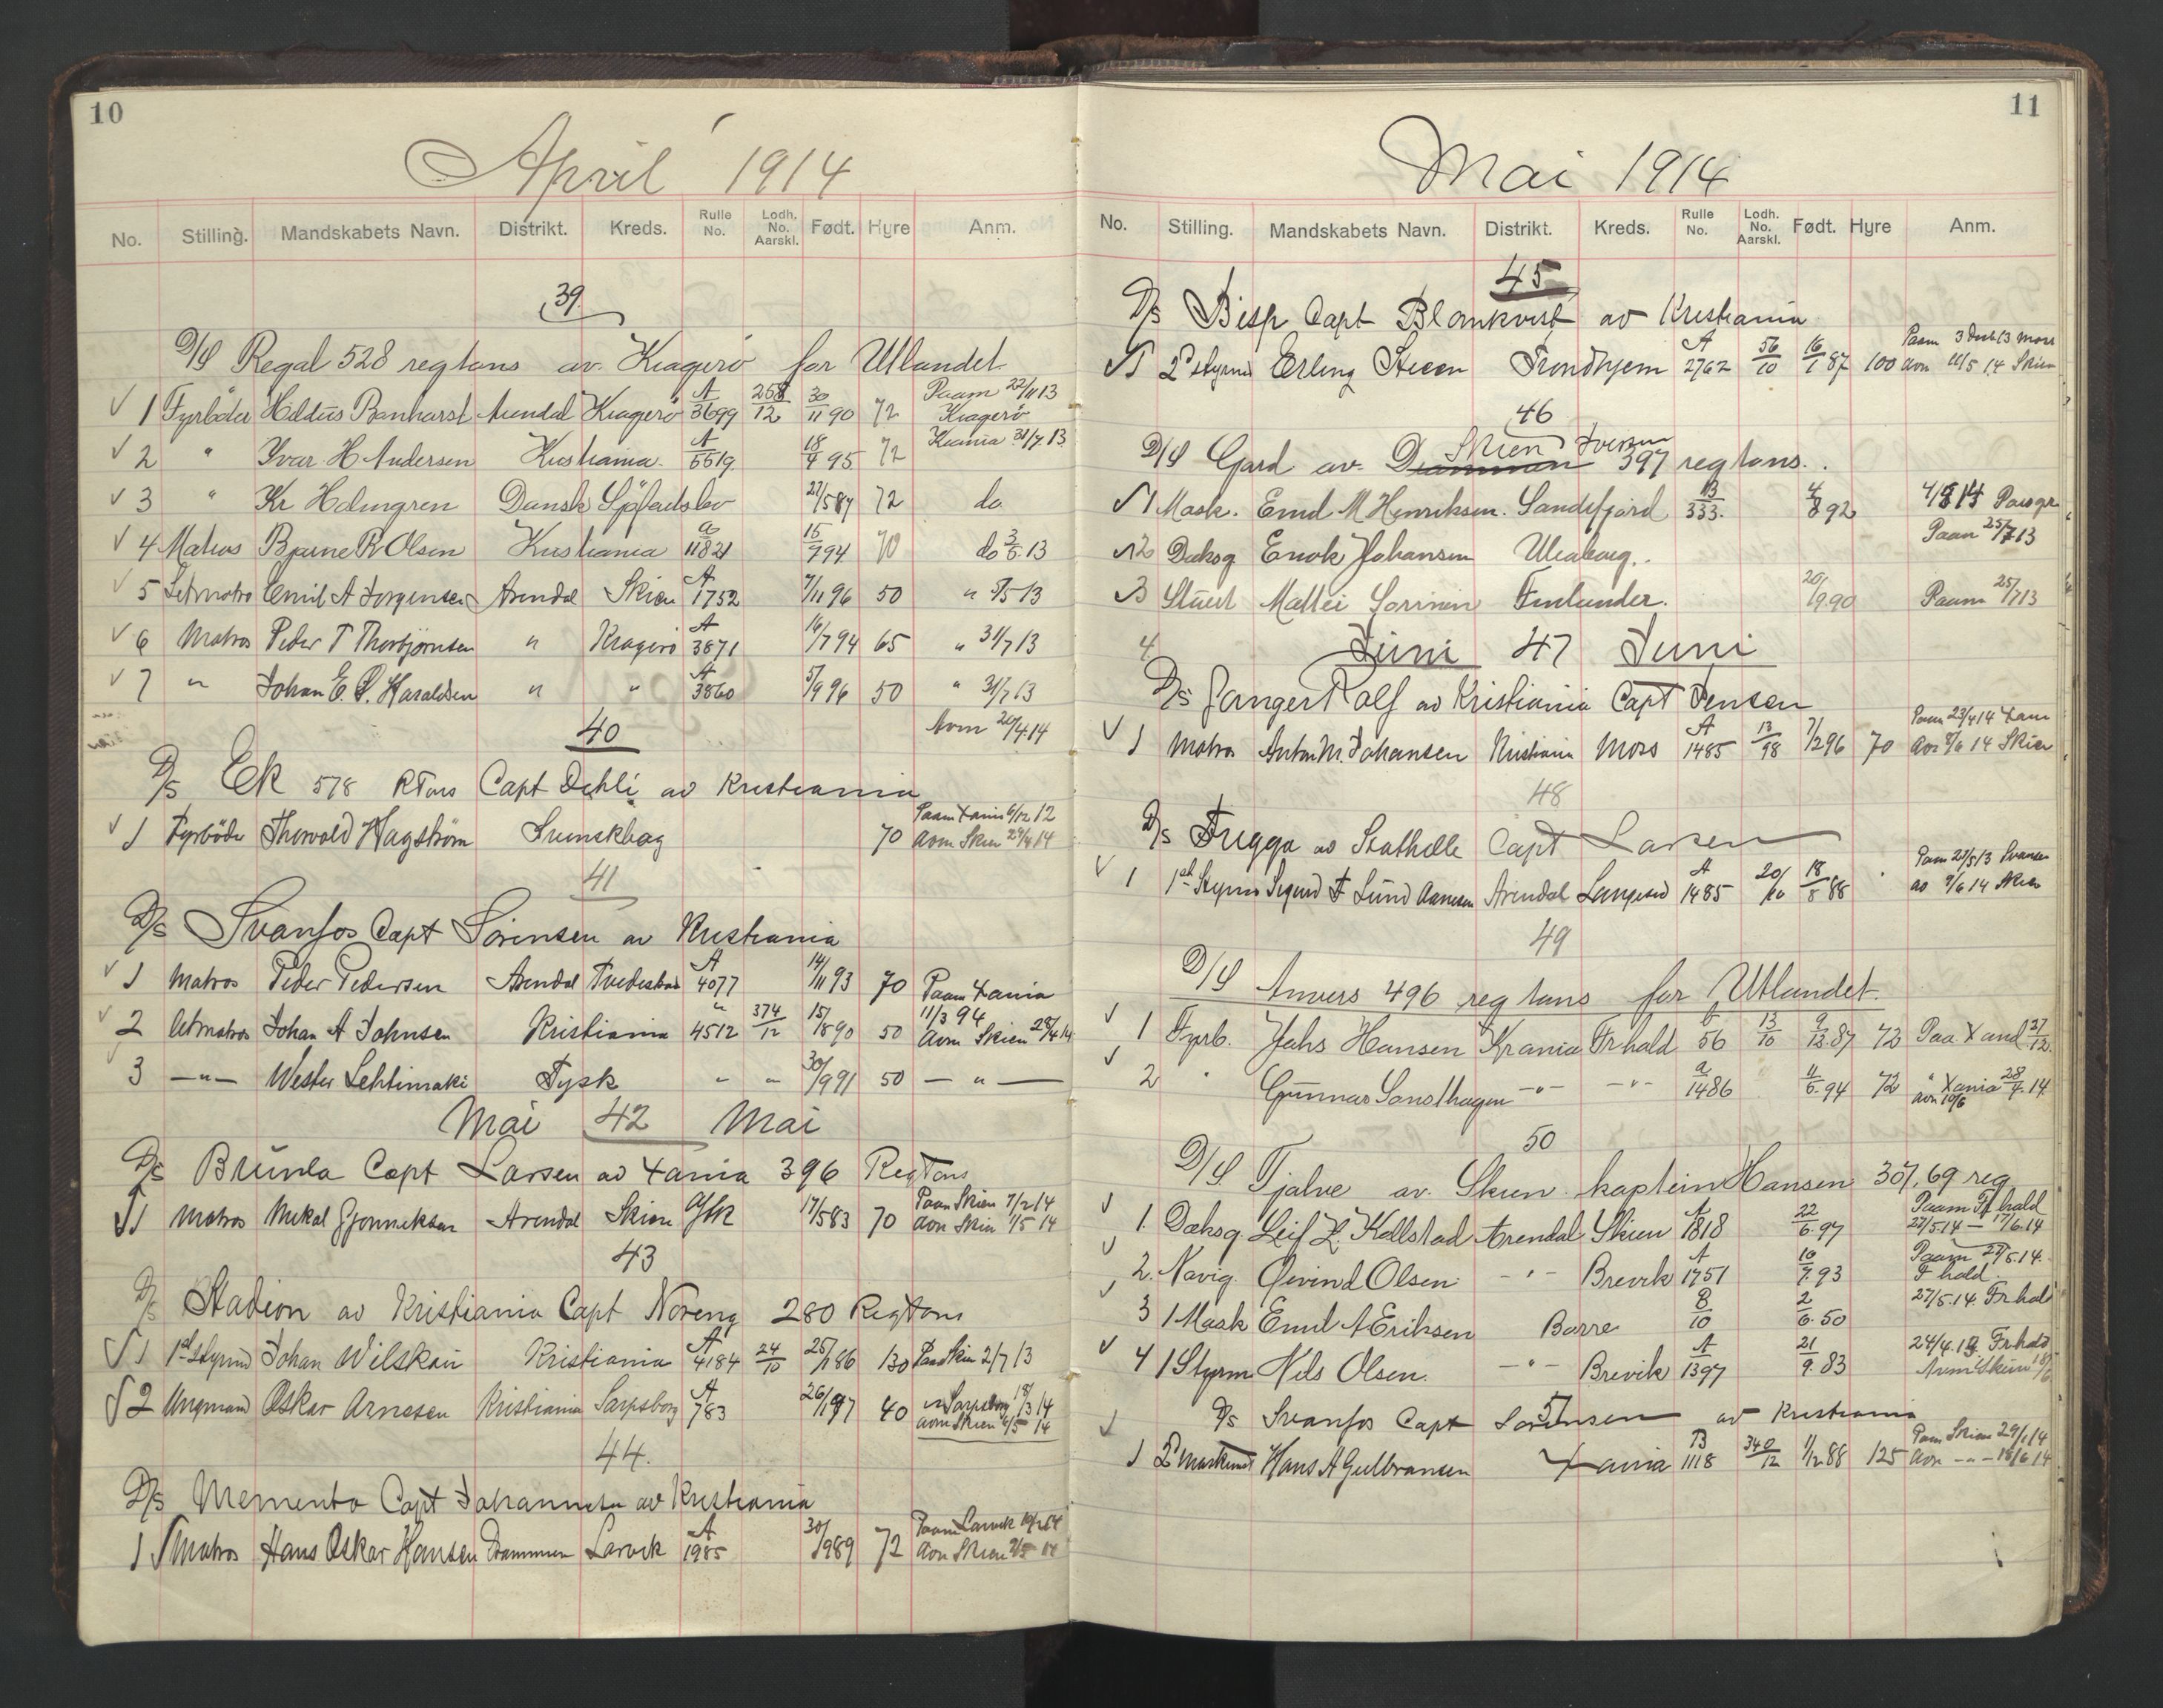 10
April 1914
No. Stilling. Mandskabets Navn. Distrikt. Kreds. Rulle No. Lodh. No. Aarskl. Født. Hyre Anm.
39.
D/S Regal 528 regtons av Kragerö for Utlandet
1 Fyrböder Arendal Kragerö A 3699 258/12 30/11 90 72 Paam 22/11 13 Kragerö
2 " Yvar H Andersen Kristiania A 5519 18/4 95 72 Krania 31/7 13
3 " Kr Holmgren Dansk 27/5 87 72 do
4 Matros Bjarne R Olsen Kristiania 11821 15/7 94 70 do 3/5 13
5 Letmatros Emil A Jorgensen Arendal Skien A 1752 7/11 96 50 " 5/5 13
6 Matros Peder T Thorbjørnsen " Kragerö A 3871 16/7 94 65 " 31/7 13
7 " Johan E. P. Haraldsen " " A 3860 5/9 96 50 " 31/7 13
Avm 20/4 14
40
D/S Ek 578 RTons Capt Dehli av Kristiania
1 Fyrböder Thorvald Hagström Svenskbog 70 Paam Xania 6/12 12 Avm Skien 29/4 14
41
D/S Svanfos Capt Sörensen av Kristiania
1 Matros Peder Pedersen Arendal A 4077 14/11 93 70 Paam Xania
2 Letmatros Johan A Johnsen Kristiania " 4512 374/12 15/1 890 50 11/3 94 Avm Skien 28/4 14
3 — " — Wester Lehtimaki Tysk " " 30/9 91 50 — " —
Mai 42 Mai
D/S Brunla Capt Larsen av Xania 396 RegTons
1 Matros Mikal Arendal Skien 17/5 83 70 Paam Skien 7/2 14 Avm Skien 1/5 14
43
D/S Stadion av Kristiania Capt Noreng 280 Regtons
1 1st Styrmd Johan Wilskau Kristiania A 4184 24/10 25/1 86 130 Paam Skien 2/7 13
2 Ungmand Oskar Arnesen Kristiania Sarpsborg A 783 26/1 97 40 Sarpsborg 18/3 14 avm Skien 4/5 14
44.
D/S Memento Capt Johannesen av Kristiania
1 Matros Hans Oskar Hansen Drammen Larvik A 1985 30/9 89 72 Paam Larvik Avm Skien
11
Mai 1914
No. Stilling. Mandskabets Navn. Distrikt. Kreds. Rulle No. Lodh. No. Aarskl. Født. Hyre Anm.
45
D/S Bisp Capt Blomkvist av Kristiania
1 2d Styrmd Erling Steen Trondhjem A 2762 56/10 16/1 87 100 Paam 3 Dcb 13 Moss Avm 11/5 14 Skien
46
D/S Gard av Drammen Skien Iversen 397 regtons.
1 Mask. Emil M Henriksen. Sandefjord 13 333. 4/8 92 Porsgr
2 Daksg Enok Johansen Uleaborg. Paam 25/7 13
3 Stuert Mattei Sorrinen Finlander. 20/9.90 Paam 25/7 13
4
Juni 47 Juni
D/S GangerRolf av Kristiania Capt Jensen
1 Matros Anton M. Johansen Kristiania Moss A 1485 13/98 7/2 96 70 Paam 23/4 14 Xania Avm 8/6 14 Skien
48
D/S Frigga av Stathelle Capt Larsen
1 1st Styrm Sigurd F Lund Aanesen Arendal Langesund A 1485 20/10 18/8 88 Paam 23/5 13 9/6 14 Skien
49
D/S Anvers 496 regtons for Utlandet.
1 Fyrb. Johs Hansen Krania Frhald 56 13/10 9/12.87 72 Paa Xand 27/12.
2 " Gunnar Sandhagen — " — — " — a 1486 11/6.94 72 " Xania 28/4.14 Avm 10/6
50
D/S Tjalve av Skien kaptein Hansen 307,69 reg
1. Daksg. Leif L. Kollstad Arendal Skien A 1818 22/6.97 Paam Frhald 27/5.14 — 17/6.14
2. Navig. Øivind Olsen — " — Brevik A 1751 16/7.93 Paam 27/5.14. Fhald.
3 1 Mask Emil A Eriksen Borre 8/10 2/6.50 27/5.14. Frhald
4 1 Styrm Nils Olsen. — " — Brevik A 1397 21/9.83 24/4.13 Frhald Avm Skien 18/6
51
D/S Svanfos Capt Sorensen av Kristiania
1 2d Maskinist Hans A Gulbransen Xania B 1118 340/12 1/12 88 125 Paam Skien 29/1 14 Avm — " — 18/6 14